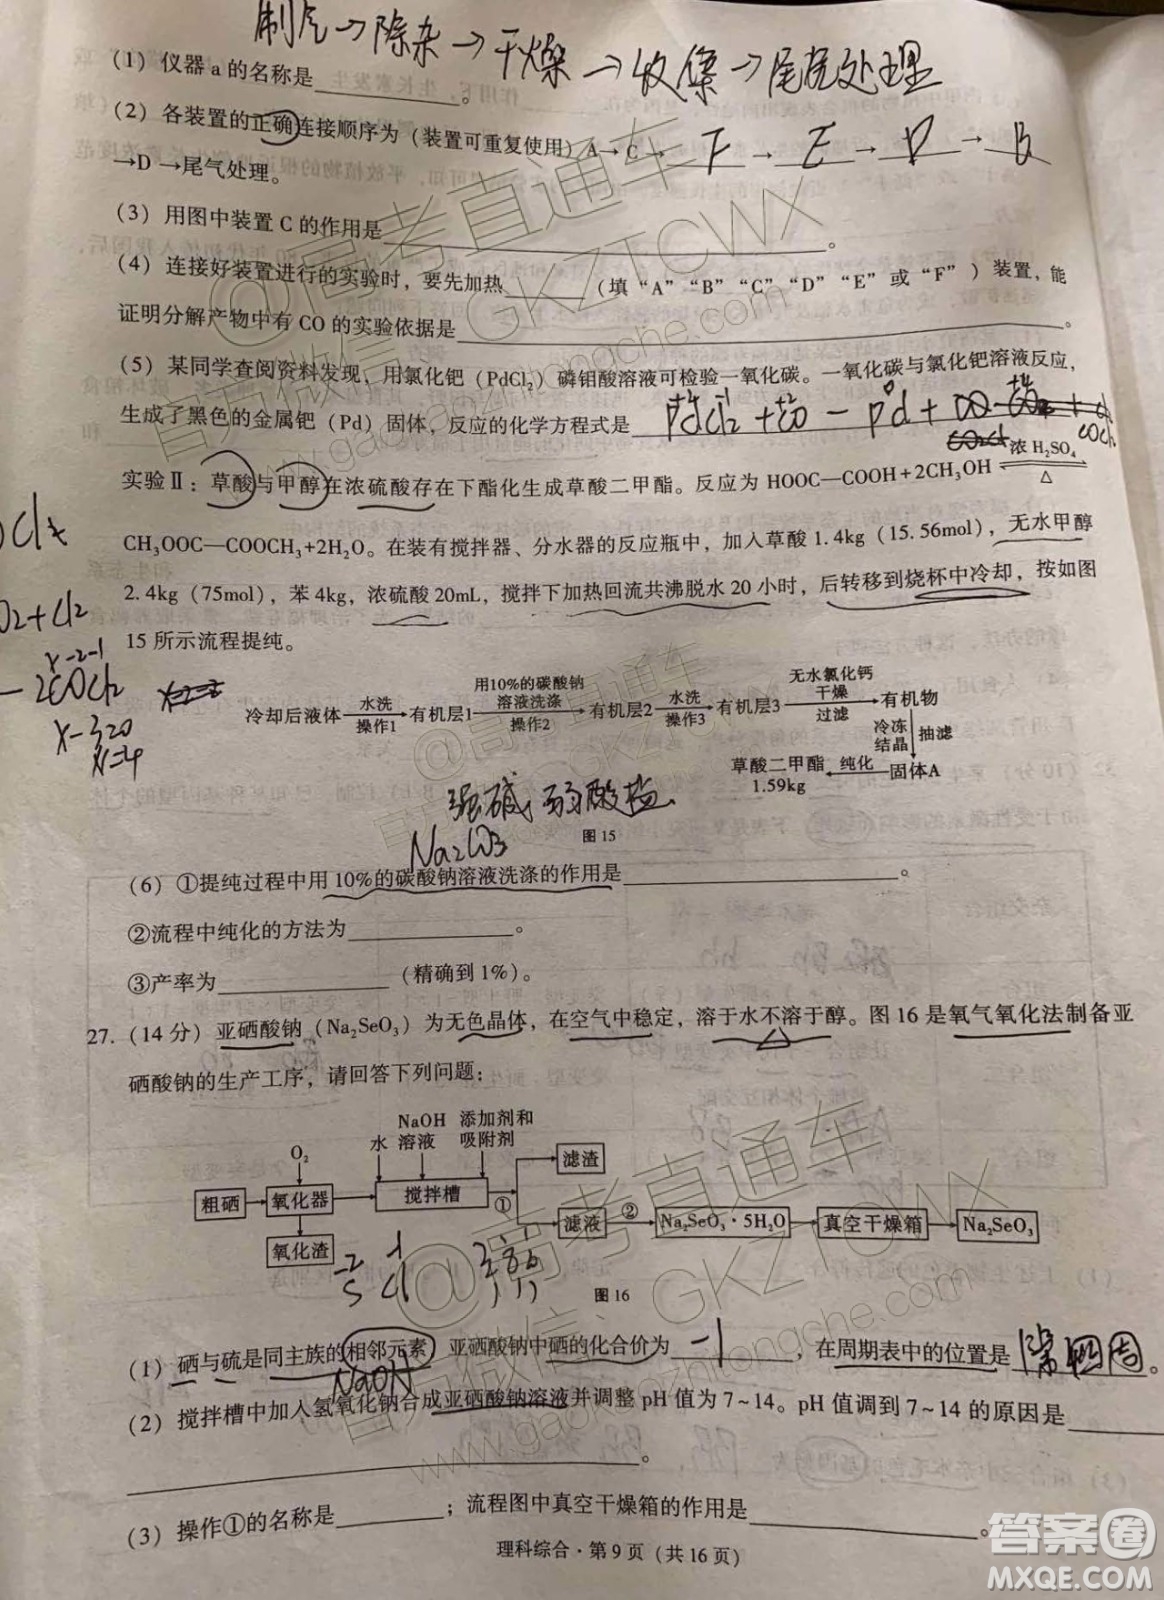 制气→除杂→干燥→收集→尾气处理
(1) 仪器 a 的名称是________。
(2) 各装置的正确连接顺序为（装置可重复使用）A→C→ F → E → D → B
→D→尾气处理。
(3) 用图中装置 C 的作用是________。
(4) 连接好装置进行的实验时，要先加热______（填“A”“B”“C”“D”“E”或“F”）装置，能
证明分解产物中有 CO 的实验依据是________。
(5) 某同学查阅资料发现，用氯化钯（PdCl₂）磷钼酸溶液可检验一氧化碳。一氧化碳与氯化钯溶液反应，
生成了黑色的金属钯（Pd）固体，反应的化学方程式是
实验Ⅱ：草酸与甲醇在浓硫酸存在下酯化生成草酸二甲酯。反应为 HOOC—COOH+2CH₃OH 浓 H₂SO₄ ⇌ △
CH₃OOC—COOCH₃+2H₂O。在装有搅拌器、分水器的反应瓶中，加入草酸 1.4kg（15.56mol），无水甲醇
2.4kg（75mol），苯 4kg，浓硫酸 20mL，搅拌下加热回流共沸脱水 20 小时，后转移到烧杯中冷却，按如图
15 所示流程提纯。
冷却后液体 水洗 操作1 → 有机层1 用10%的碳酸钠溶液洗涤 操作2 → 有机层2 水洗 操作3 → 有机层3 无水氯化钙 干燥 过滤 → 有机物
冷冻 结晶 抽滤
草酸二甲酯 1.59kg ← 纯化 固体A
强碱弱酸盐
图 15
Na₂CO₃
(6) ①提纯过程中用 10%的碳酸钠溶液洗涤的作用是________。
②流程中纯化的方法为________。
③产率为________（精确到 1%）。
27. (14 分) 亚硒酸钠（Na₂SeO₃）为无色晶体，在空气中稳定，溶于水不溶于醇。图 16 是氧气氧化法制备亚
硒酸钠的生产工序，请回答下列问题：
O₂ 水 NaOH 溶液 添加剂和吸附剂
粗硒 → 氧化器 → 搅拌槽 ① → 滤渣
氧化渣 滤液 ② → Na₂SeO₃·5H₂O → 真空干燥箱 → Na₂SeO₃
图 16
(1) 硒与硫是同主族的相邻元素，亚硒酸钠中硒的化合价为 -1 ，在周期表中的位置是 第四周。
NaOH
(2) 搅拌槽中加入氢氧化钠合成亚硒酸钠溶液并调整 pH 值为 7~14。pH 值调到 7~14 的原因是____
________。
(3) 操作①的名称是________；流程图中真空干燥箱的作用是________。
理科综合·第 9 页（共 16 页）
@高考直通车
官方微信：GKZTCWX
www.gaokzhitongche.com
答案圈
MXQE.COM